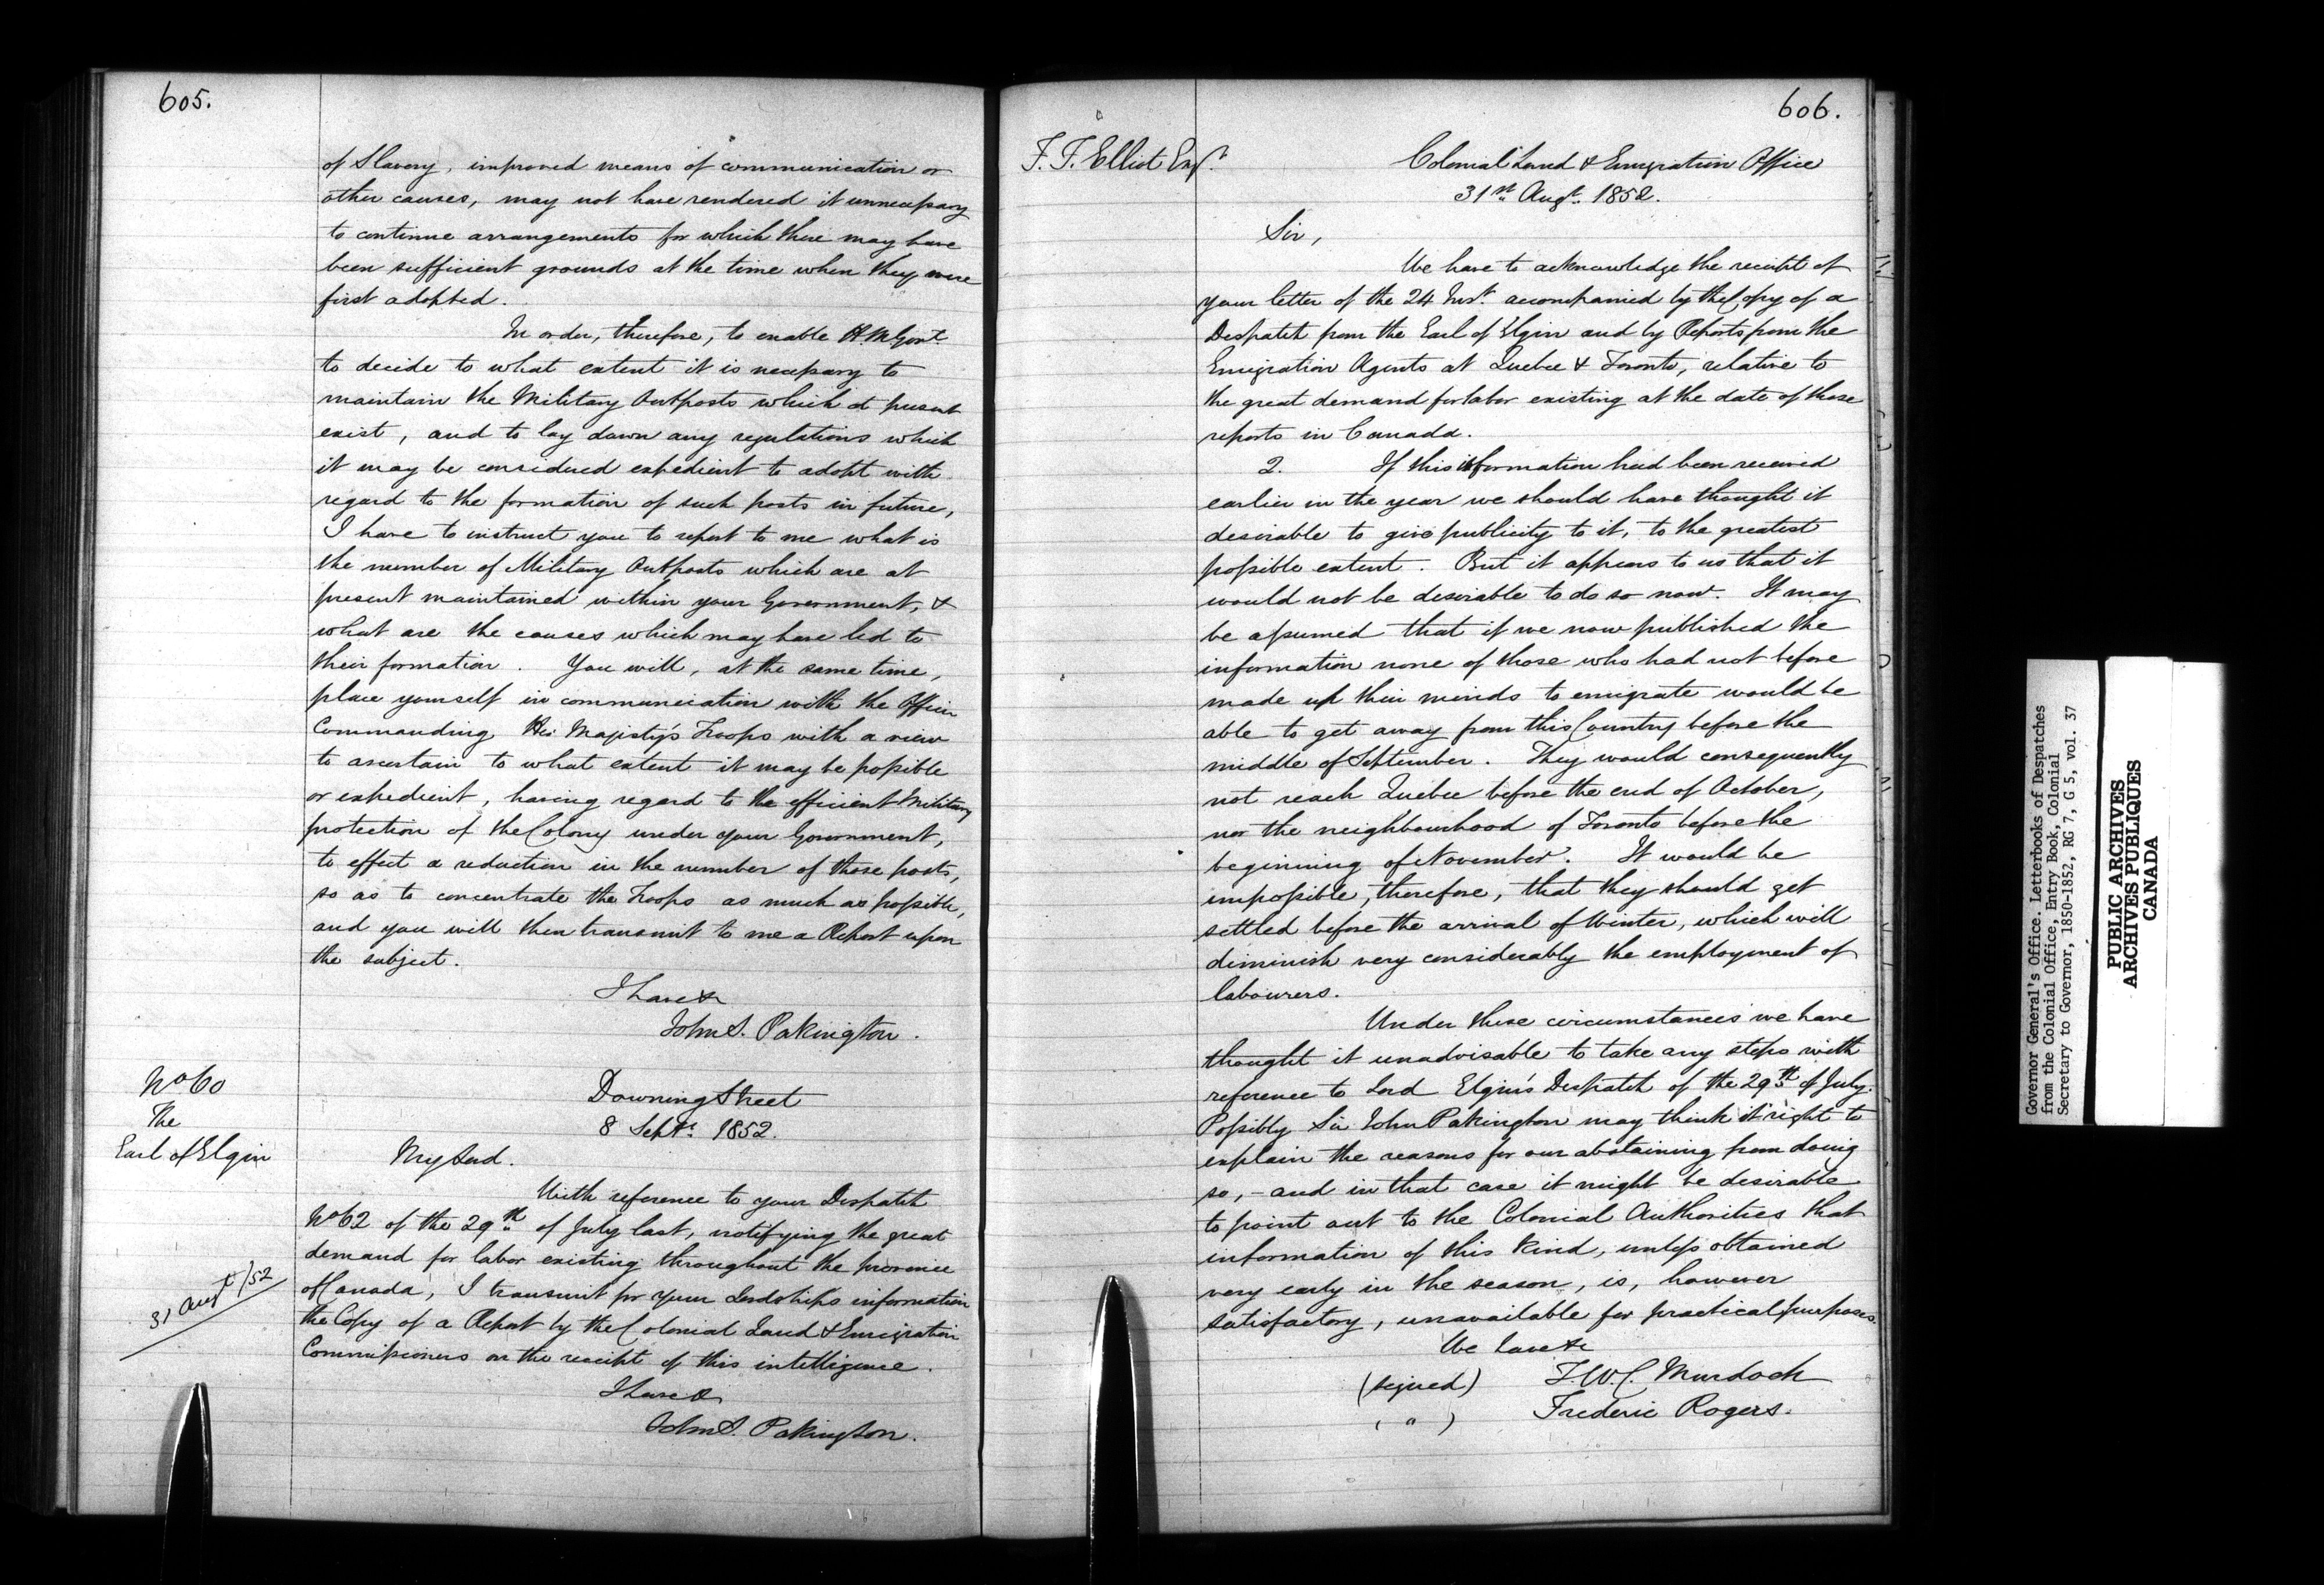 605.
of Slavery, improved means of communication or
other causes, may not have rendered it unnecessary
to continue arrangements for which there may have
been sufficient grounds at the time when they were
first adopted.
In order, therefore, to enable H.M. Govt.
to decide to what extent it is necessary to
maintain the Military Outposts which at present
exist, and to lay down any regulations which
it may be considered expedient to adopt with
regard to the formation of such posts in future,
I have to instruct you to report to me what is
the number of Military Outposts which are at
present maintained within your Government, &
what are the causes which may have led to
their formation. You will, at the same time,
place yourself in communication with the Officer
Commanding Her Majesty's Troops with a view
to ascertain to what extent it may be possible
or expedient, having regard to the efficient Military
protection of the Colony under your Government,
to effect a reduction in the number of those posts,
so as to concentrate the Troops as much as possible,
and you will then transmit to me a Report upon
the subject.
I have &c
John S. Pakington.
No 60
The
Earl of Elgin
Downing Street
8 Septr. 1852.
My Lord.
With reference to your Despatch
No 62 of the 29th of July last, notifying the great
demand for labor existing throughout the province
of Canada, I transmit for your Lordship's information
31 Augt/52
the Copy of a Report by the Colonial Land & Emigration
Commissioners on the receipt of this intelligence.
I have &
John S. Pakington.
606.
T. F. Elliot Esqr.
Colonial Land & Emigration Office
31st Augt. 1852.
Sir,
We have to acknowledge the receipt of
your letter of the 24 Inst. accompanied by the Copy of a
Despatch from the Earl of Elgin and by Reports from the
Emigration Agents at Quebec & Toronto, relative to
the great demand for labor existing at the date of those
reports in Canada.
2. If this information had been received
earlier in the year we should have thought it
desirable to give publicity to it, to the greatest
possible extent. But it appears to us that it
would not be desirable to do so now. It may
be assumed that if we now published the
information none of those who had not before
made up their minds to emigrate would be
able to get away from this Country before the
middle of September. They would consequently
not reach Quebec before the end of October,
nor the neighbourhood of Toronto before the
beginning of November. It would be
impossible, therefore, that they should get
settled before the arrival of Winter, which will
diminish very considerably the employment of
labourers.
Under these circumstances we have
thought it unadvisable to take any steps with
reference to Lord Elgin's Despatch of the 29th of July.
Possibly Sir John Pakington may think it right to
explain the reasons for our abstaining from doing
so, - and in that case it might be desirable
to point out to the Colonial Authorities that
information of this kind, unless obtained
very early in the season, is, however
satisfactory, unavailable for practical purposes.
We have &c
(signed) T.W.C. Murdoch
( " ) Frederic Rogers.
Governor General's Office. Letterbooks of Despatches
from the Colonial Office, Entry Book, Colonial
Secretary to Governor, 1850-1852, RG 7, G 5, vol. 37
PUBLIC ARCHIVES
ARCHIVES PUBLIQUES
CANADA